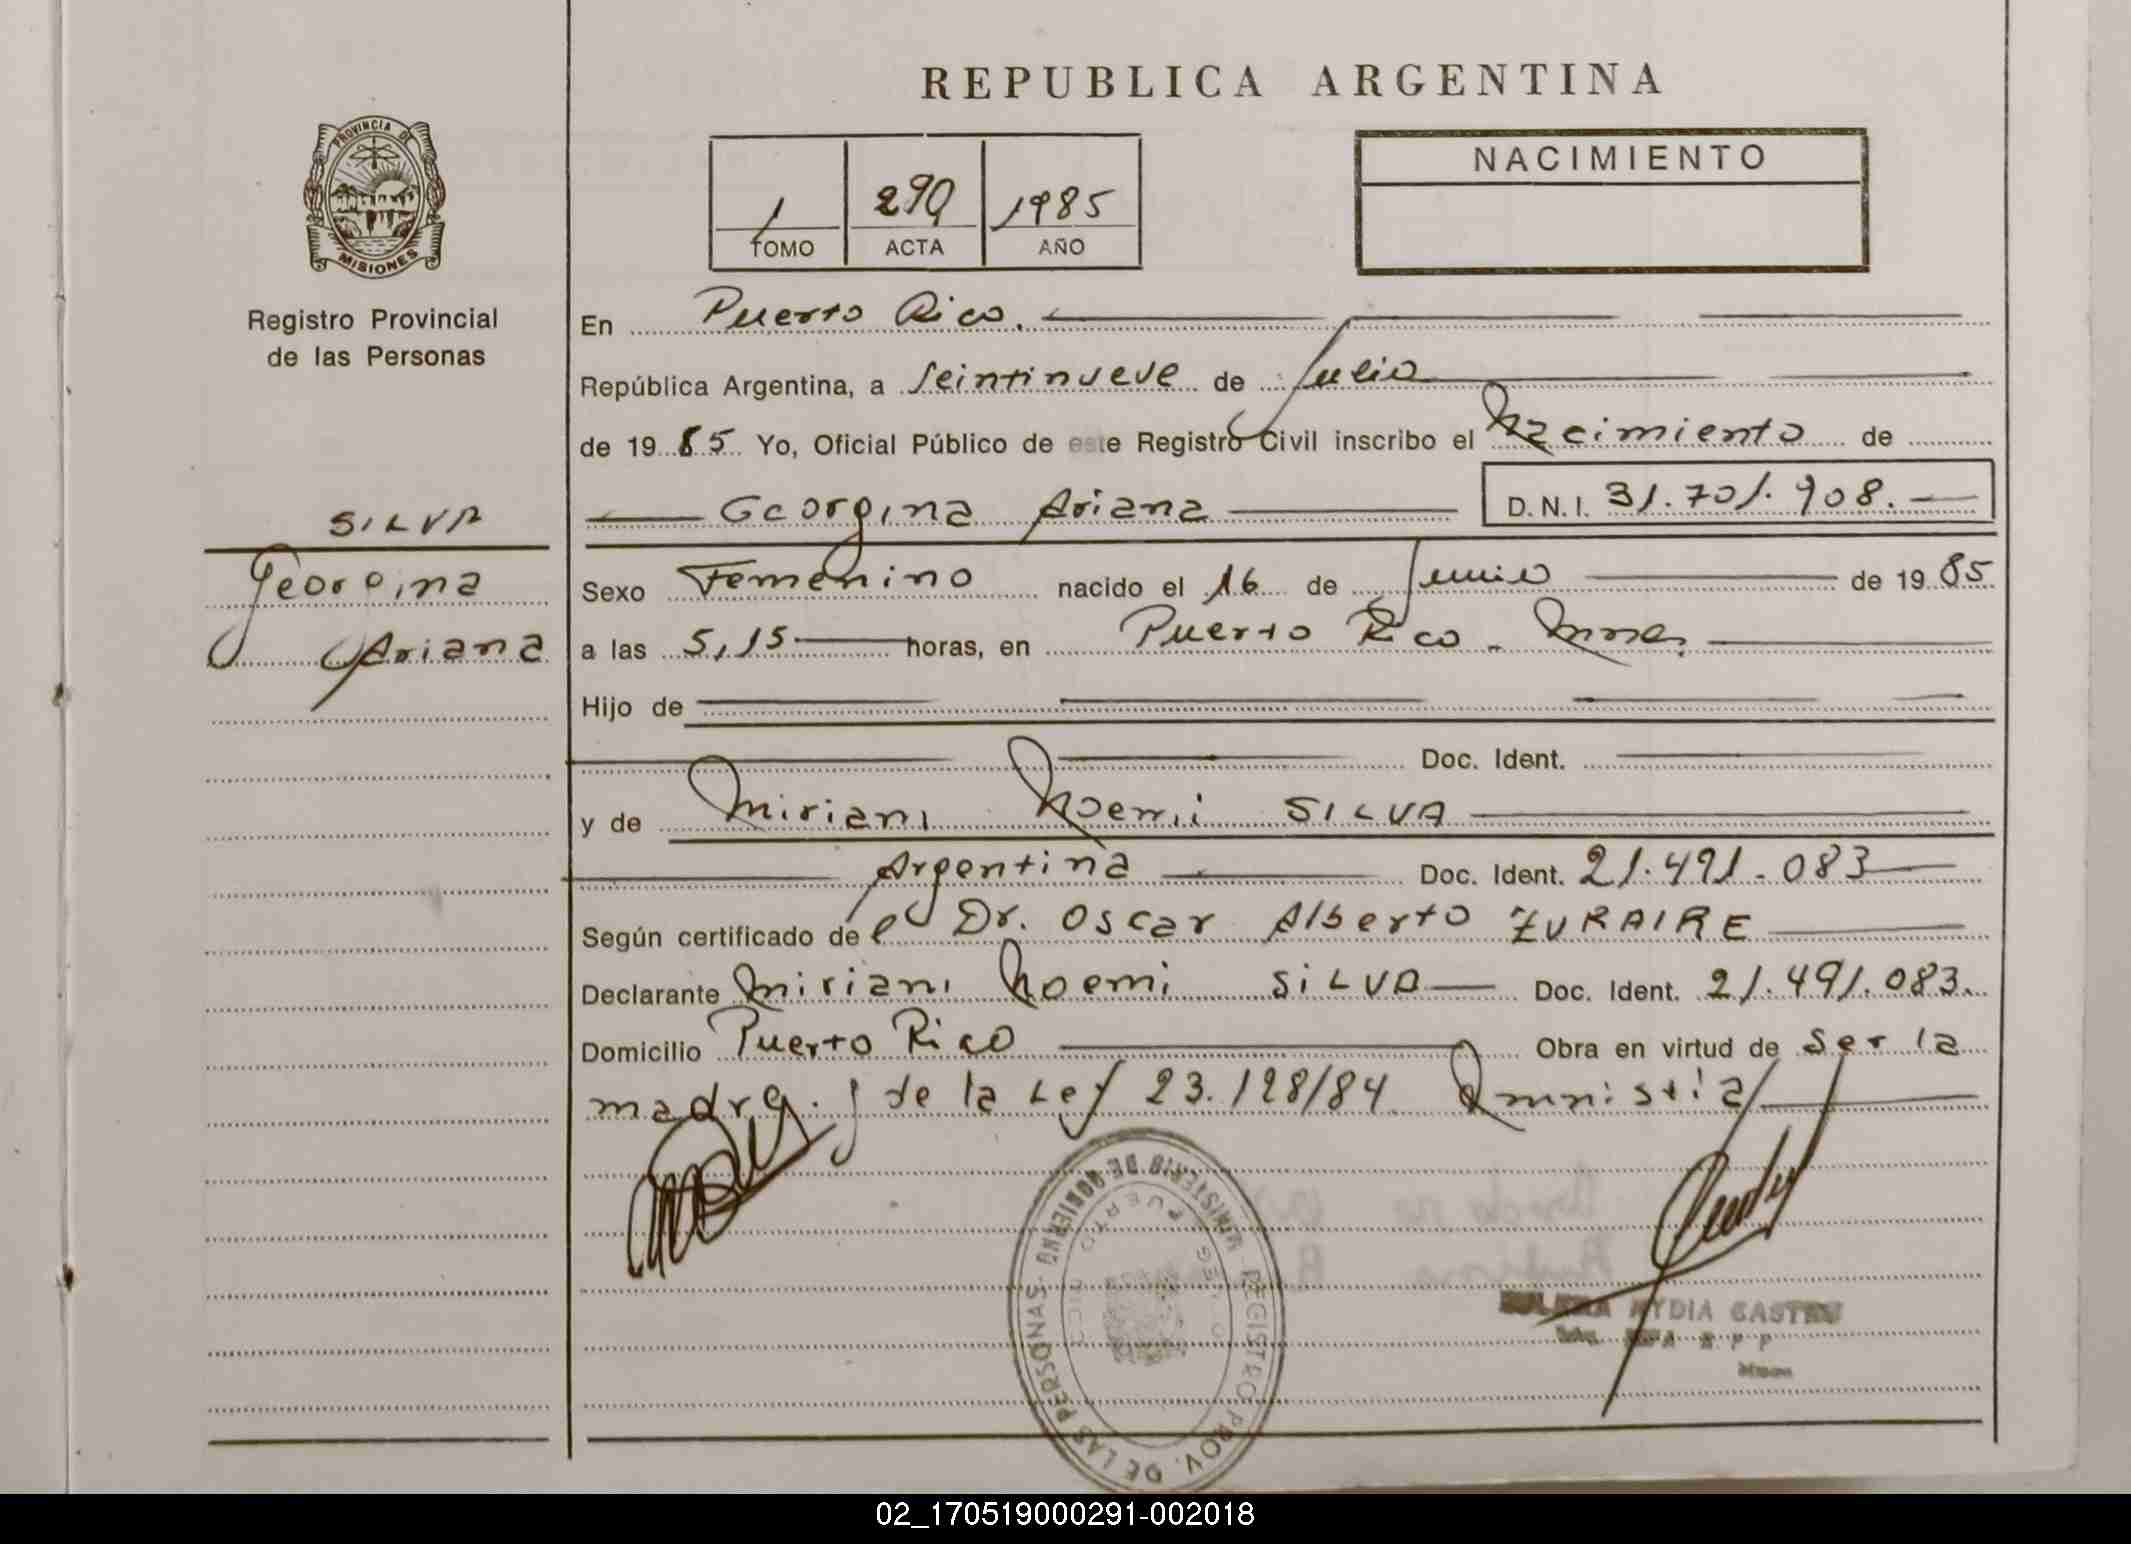 REPUBLICA ARGENTINA
PROVINCIA DE
MISIONES
Registro Provincial
de las Personas
NACIMIENTO
1 290 1985
TOMO ACTA AÑO
En Puerto Rico.
República Argentina, a Veintinueve de Julio
de 19 85 Yo, Oficial Público de este Registro Civil inscribo el Nacimiento de
Georgina Ariana D.N.I. 31.701.908.
SILVA
Georgina
Ariana
Sexo Femenino nacido el 16 de Junio de 19 85
a las 5,15 horas, en Puerto Rico - Mnes.
Hijo de
Doc. Ident.
y de Miriam Noemi SILVA
Argentina Doc. Ident. 21.491.083
Según certificado de el Dr. Oscar Alberto ZURAIRE
Declarante Miriam Noemi SILVA Doc. Ident. 21.491.083.
Domicilio Puerto Rico Obra en virtud de ser la
madre. y de la Ley 23.128/84 Amnistia
MINISTERIO DE GOBIERNO - REGISTRO PROV. DE LAS PERSONAS
PUERTO RICO
NYDIA
02_170519000291-002018